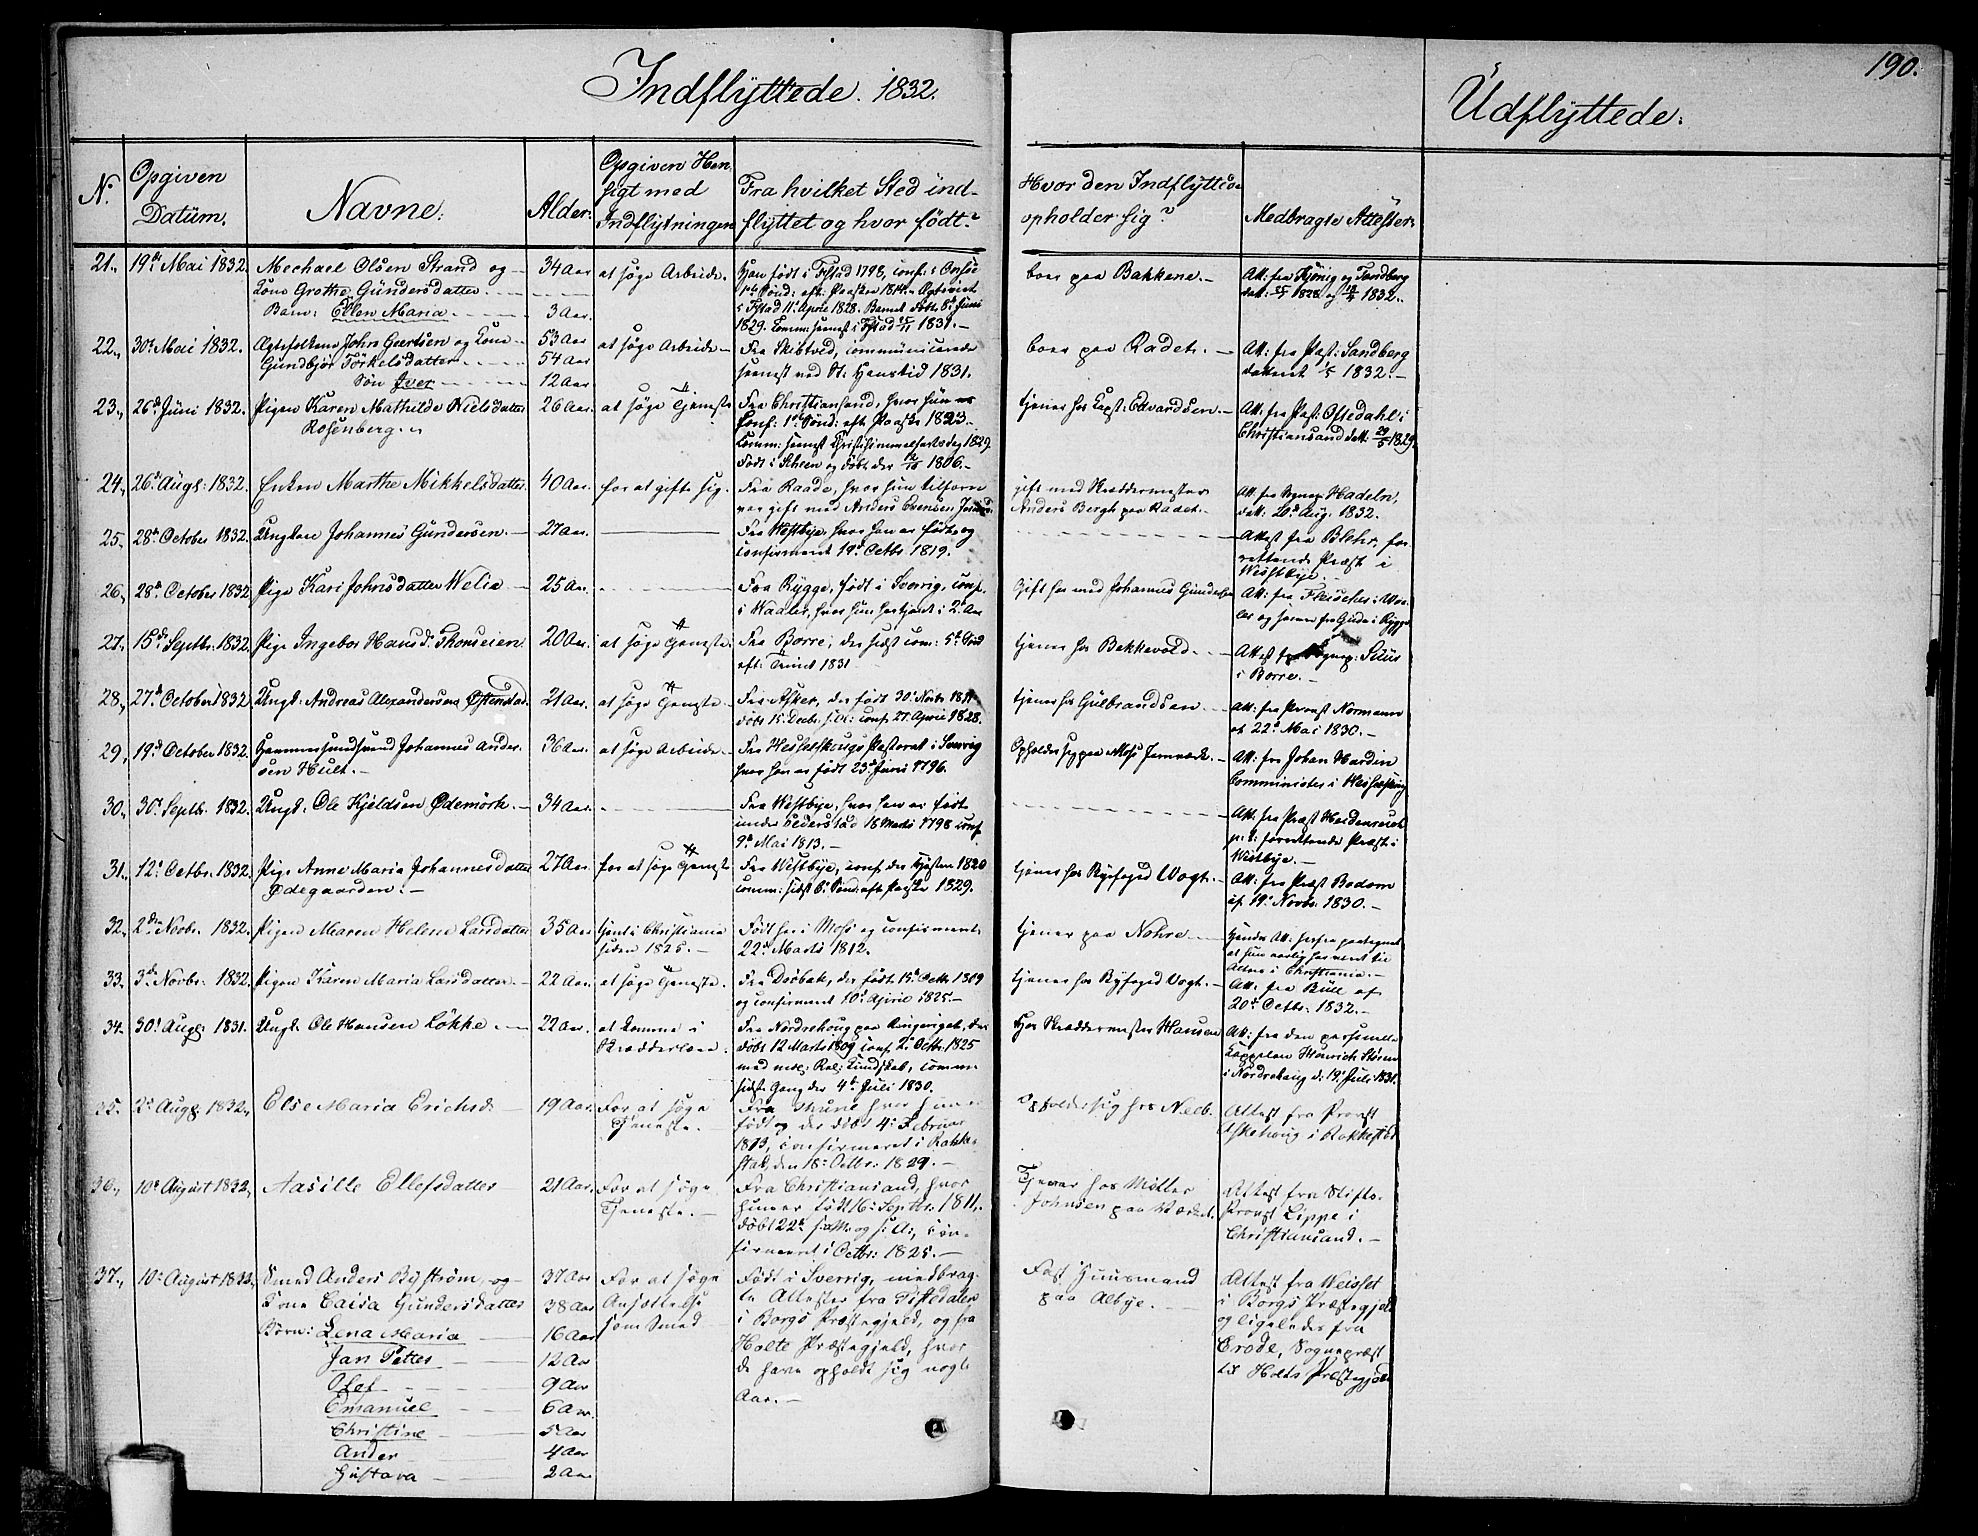 Indflyttede. 1832.
190.
Udflyttede.
N.
Opgiven Datum.
Navne.
Alder.
Opgiven Hensigt med Indflytningen
Fra hvilket Sted indflyttet og hvor født?
Hvor den Indflyttede opholder sig?
Medbragte Attester.
21., 19de Mai 1832. Mechael Olsen Strand og — 34 Aar. at søge Arbeide.
Kone Grethe Gündersdatter
Barn: Ellen Maria. 3 Aar.
Han født i 1798, conf: i Onsøe
1829. Comm: seenest i 1831.
boer paa Bakkene.
Att: fra og Sandberg
dat: 1828 og 1832.
22., 30te Mai 1832. Ægtefolkene John Geertsen og Kone 53 Aar at søge Arbeide
Gundbjør Törkelsdatter 54 Aar
Søn Iver 12 Aar
Fra Skibtved, communicerede
seenest ved St: Hanstid 1831.
boer paa Radet.
Att: fra Past: Sandberg
dateret 1/5 1832.
23., 26de Juni 1832. Pigen Karen Mathilde Nielsdatter 26 Aar. at søge Tjeneste
Rosenberg.
Fra Christiansand, hvor hun er
Conf: 1ste Sønd: eft: Paaske 1823.
Comm: seenest Christihimmelfartsdag 1829.
Født i Scheen og døbt der 1806.
tjener hos Capt: Edvardsen.
Att: fra Past: Oftedahl i
Christiansand dat: 1829.
24., 26de Augt: 1832. Enken Marthe Mikkelsdatter 40 Aar. for at gifte sig.
Fra Raade, hvor hun tilforn
var gift med Anders Evensen
gift med Skræddermester
Anders Bergh paa Radet.
Att. fra Sognep: Hadeln,
dat: 20de Aug. 1832.
25., 28de October 1832. Ungkar Johannes Gundersen. 27 Aar.
Fra Westbye, hvor han er født og
confirmeret 19de Octbr. 1819.
Attest fra Blehr, forrettende
Præst i
Westbye.
26., 28de October 1832. Pige Kari Johnsdatter Welia 25 Aar.
Fra Rygge, født i Sverrig, conf.
i Waaler, hvor hun har tjent i 2de Aar
Gift her med Johannes Gundersen
Att: fra Fleischer i Waaler
og senere fra Gude i Rygge
27., 15de Septbr. 1832. Pige Ingebor Hansd: Thomseien 20 Aar. at søge Tjeneste.
Fra Borre, der sidst com: 5te Sønd
eft: Trinit 1831
tjener hos Bakkevold.
Attest fra Sognep:
i Borre.
28., 27de October 1832. Ungk: Andreas Alexandersen Østenstad. 21 Aar. at søge Tjeneste.
Fra Asker, der født 30te Novbr. 1811
døbt 15 Decbr. s: A: conf. 27. April 1828.
tjener hos Gulbrandsen
Att: fra Provst Normann
af 22de Mai 1830.
29., 19de October 1832. Johannes Andersen 36 Aar. at søge Arbeide.
Hult.
Fra Pastorat i Sverrig
hvor han er født 23de Juni 1796.
Opholder sig paa Moss Jernværk.
Att: fra Johan Hardin
Comminister i
30., 30te Septbr. 1832. Ungk: Ole Kjeldsen Ødemörk. 34 Aar.
Fra Westbye, hvor han er født
under Pederstad 18 Marts 1798 conf
9de Mai 1813.
Att: fra Præst Heidenreich
p: t: forrettende Præst i
Westbye.
31., 12te Octbr. 1832. Pige Anne Maria Johannesdatter 27 Aar. for at søge Tjeneste
Ødegaarden.
Fra Westbye, conf. der Høsten 1820
comm: sidst 6te Sønd: eft Paaske 1829.
tjener hos Byfoged Vogt.
Att: fra Præst Bodom
af 19de Novbr. 1830.
32., 2den Novbr. 1832. Pigen Maren Helene Larsdatter 35 Aar tjent i Christiania
siden 1825.
Født her i Moss og confirmeret
22de Marts 1812.
tjener paa Nøhre
Hendes Att: herfra paategnet
at hun aarlig har været til
Alters i Christiania.
33., 3die Novbr. 1832. Pigen Karen Maria Larsdatter 22 Aar. at søge Tjeneste.
Fra Drøbak, der født 15de Octbr. 1809
og confirmeret 10de April 1825.
tjener hos Byfoged Vogt.
Att. fra Bull af
20de Octbr. 1832.
34. 30te Augt: 1831. Ungk. Ole Hansen Løkke. 22 Aar. at komme i
Skrædderlære.
Fra Nordrehoug paa Ringeriget, der
døbt 12 Marts 1809 conf. 2de Octbr. 1825
med Rel: Kundskab, comm:
sidste Gang der 4de Juli 1830.
hos Skræddermester Hansen
Att: fra den personelle
Cappelan Henrich Størm
i Nordrehoug d: 19de Juli 1831.
35. 2de Augt: 1832. Else Maria Erichsd: 19 Aar. For at søge
Tjeneste.
Fra hvor hun er
født og der døbt 4de Februar
1813, confirmeret i Rakkestad,
den 18de Octbr: 1829.
Opholder sig hos Neeb.
Attest fra Provst
Askehoug i Rakkestad
36., 10de August 1832. Aasille Ellefsdatter 21 Aar. For at søge
Tjeneste.
Fra Christiansand, hvor
hun er født 16de Septbr. 1811,
døbt 22de s: M: og s: A:, confirmeret
i Octbr: 1825.
Tjener hos Møller
Johnsen paa Værket.
Attest fra Stifts-
Provst Lippe i
Christiansand.
37., 10de August 1832. Smed Anders Byström, og 37 Aar For at søge
Kone Caisa Gundersdatter 38 Aar Ansættelse
Børn: Lena Maria 16 Aar som Smed
Jan Petter 12 Aar
Olef 9 Aar
Emanuel 6 Aar.
Christine 5 Aar
Ander 4 Aar
Gustava 2 Aar
Født i Sverrig, medbragte
Attester fra Tistedalen
i Borgs Præstegjeld, og fra
Holte Præstegjeld, hvor
de have opholdt sig nogle
Aar.
Fast Huusmand
paa Albye.
Attest fra Weisset
i Borgs Præstegjeld
og ligeledes fra
Crode, Sognepræst
til Holts Præstegjeld